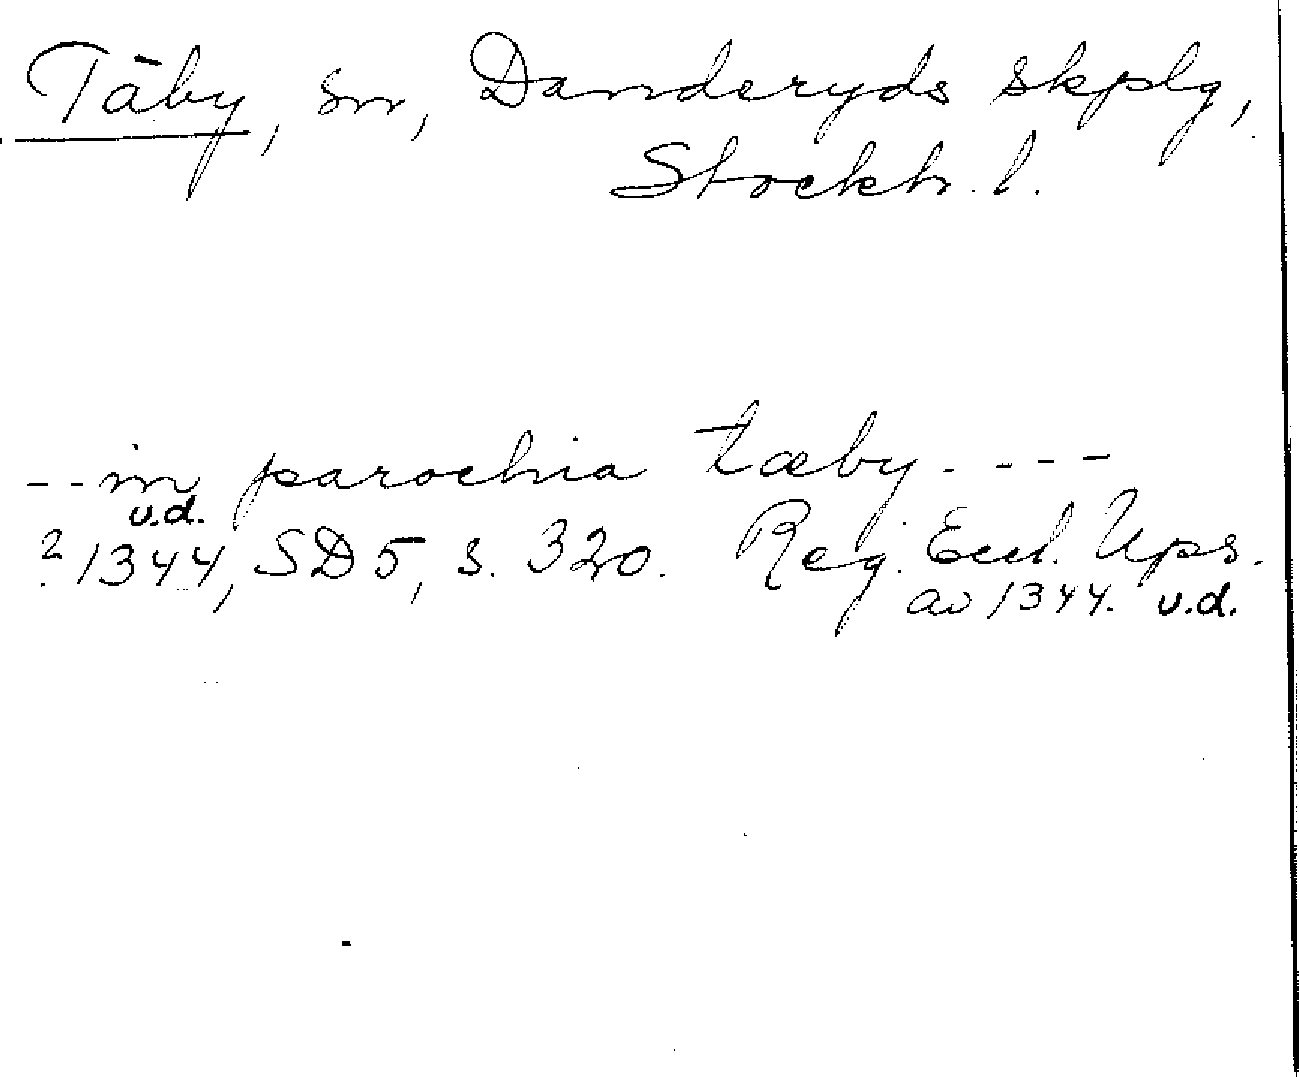 Täby, sn, Danderyds skplg,
Stockh. l.
-- in parochia tæby. ----
u.d.
? 1344, SD 5, s. 320. Reg. Eccl. Ups.
av 1344. u.d.